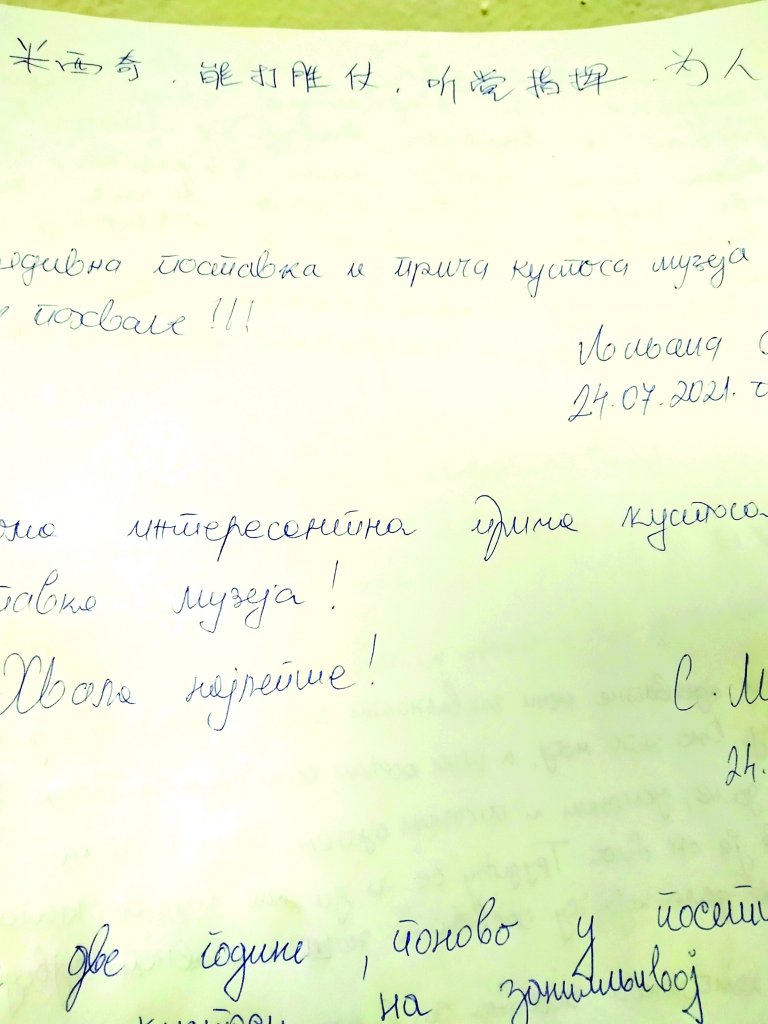 米西奇，能打胜仗，听党指挥，为人
поставка и прича кустоса музеја
похвале!!!
Љиљана
24.07.2021.
интересантна прича кустоса
музеја!
Хвала најлепше!
С. М
24.
две године, поново у посети
на занимљивој